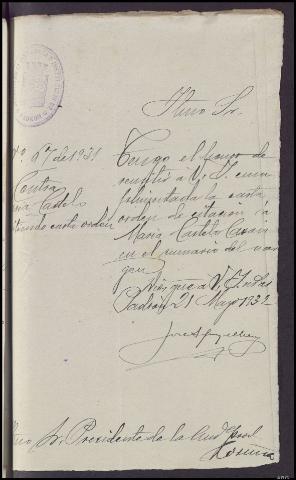 Ilmo Sr.
Nº 67 de 1931
Contra
María Castelo
carta orden
Tengo el honor de
remitir a V. I. cum
plimentada la carta
orden de citación á
María Castelo
en el sumario del mar
gen.
Dios gue a V. I. m. as
Padron 21 Mayo 1932
Ilmo Sr. Presidente de la Aud. provl
Coruña